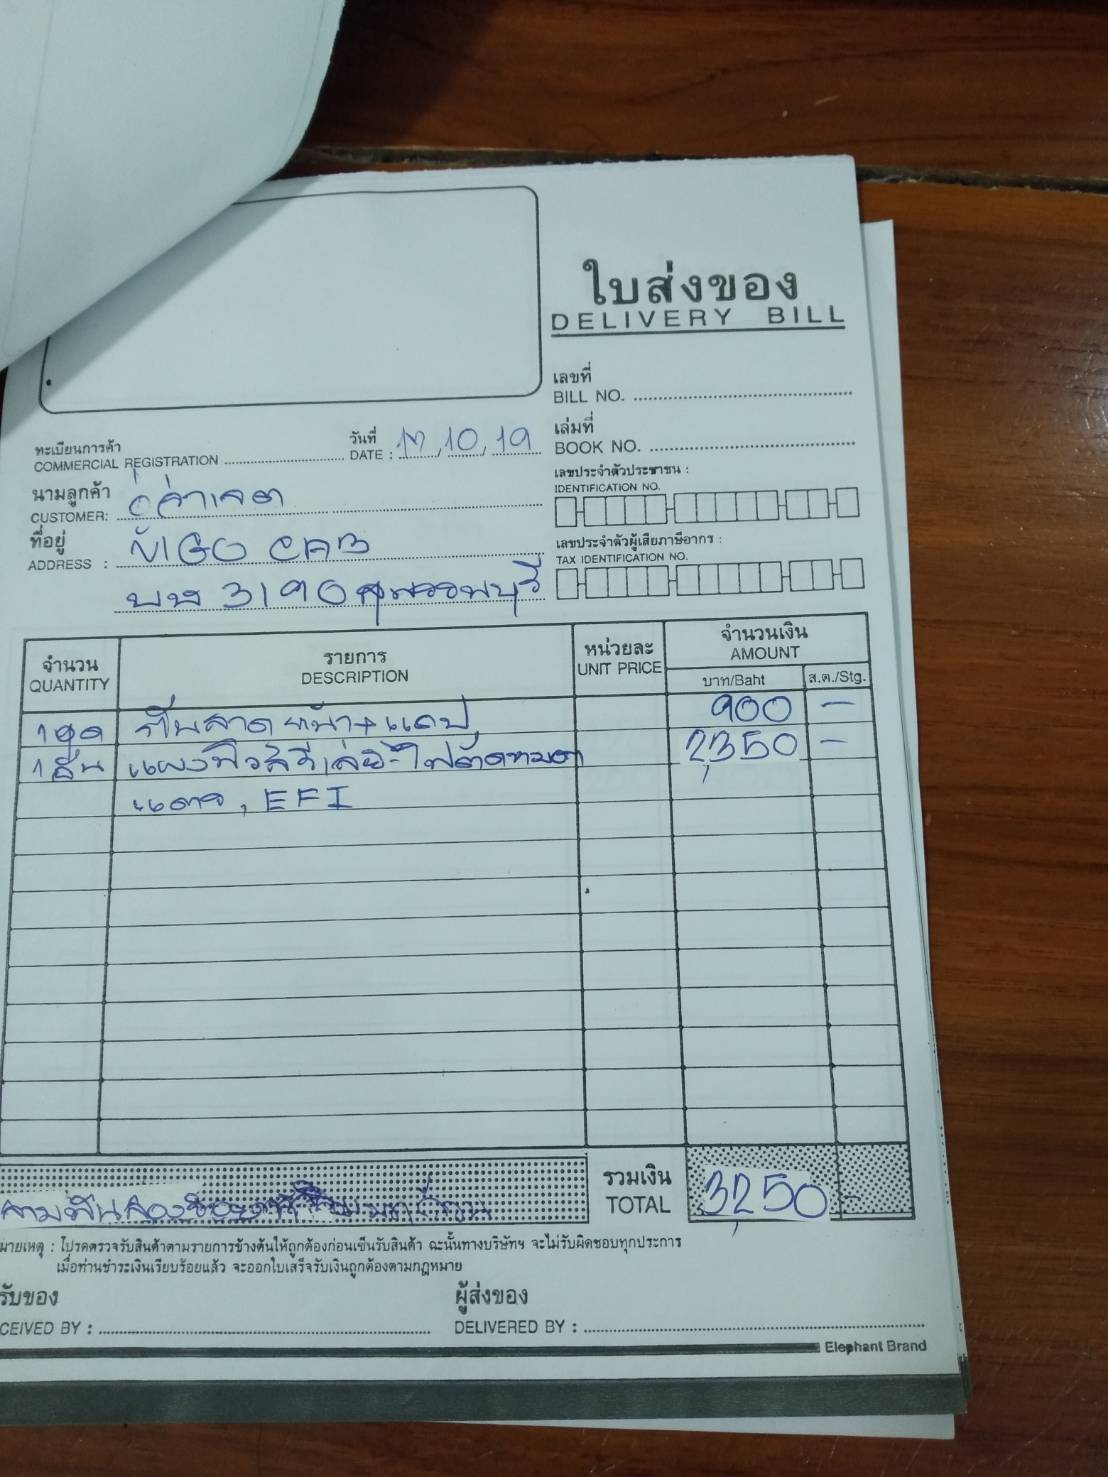 ใบส่งของ
DELIVERY BILL
เลขที่
BILL NO.
เล่มที่
BOOK NO.
ทะเบียนการค้า
COMMERCIAL REGISTRATION
วันที่
DATE : 17, 10, 19
เลขประจำตัวประชาชน :
IDENTIFICATION NO.
นามลูกค้า
CUSTOMER:
ที่อยู่
ADDRESS : VIGO CAB
บษ 3190 สุพรรณบุรี
เลขประจำตัวผู้เสียภาษีอากร :
TAX IDENTIFICATION NO.
จำนวน
QUANTITY
รายการ
DESCRIPTION
หน่วยละ
UNIT PRICE
จำนวนเงิน
AMOUNT
บาท/Baht
ส.ต./Stg.
1 ชุด หน้า+แคป 900 –
1 อัน แผงฟิวส์รีเลย์ 2,350 –
แตร, EFI
รวมเงิน
TOTAL
3,250 -
สามพันสองร้อย
มายเหตุ : โปรดตรวจรับสินค้าตามรายการข้างต้นให้ถูกต้องก่อนเซ็นรับสินค้า ฉะนั้นทางบริษัทฯ จะไม่รับผิดชอบทุกประการ
เมื่อท่านชำระเงินเรียบร้อยแล้ว จะออกใบเสร็จรับเงินถูกต้องตามกฎหมาย
รับของ
CEIVED BY :
ผู้ส่งของ
DELIVERED BY :
Elephant Brand